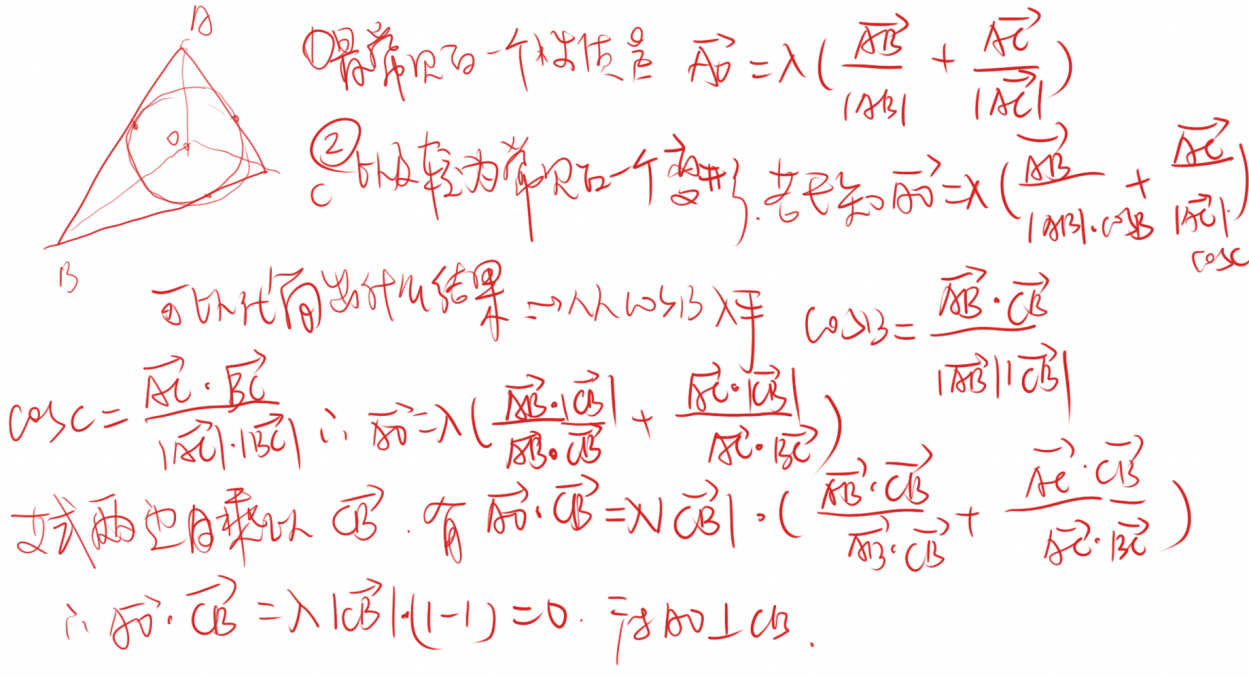 A
O
C
B
①最常见的一个性质是 $\overrightarrow{AO}=\lambda(\frac{\overrightarrow{AB}}{|AB|}+\frac{\overrightarrow{AC}}{|\overrightarrow{AC}|})$
②以及较为常见的一个变形.若已知 $\overrightarrow{AO}=\lambda(\frac{\overrightarrow{AB}}{|AB|\cdot\cos B}+\frac{\overrightarrow{AC}}{|\overrightarrow{AC}|\cdot\cos C})$
可以得出什么结果 ⇒从cosB入手 $\cos B=\frac{\overrightarrow{AB}\cdot\overrightarrow{CB}}{|\overrightarrow{AB}||\overrightarrow{CB}|}$
$\cos C=\frac{\overrightarrow{AC}\cdot\overrightarrow{BC}}{|\overrightarrow{AC}|\cdot|\overrightarrow{BC}|}$ ∴ $\overrightarrow{AO}=\lambda(\frac{\overrightarrow{AB}\cdot|\overrightarrow{CB}|}{\overrightarrow{AB}\cdot\overrightarrow{CB}}+\frac{\overrightarrow{AC}\cdot|\overrightarrow{CB}|}{\overrightarrow{AC}\cdot\overrightarrow{BC}})$
式两边同乘以 $\overrightarrow{CB}$.有 $\overrightarrow{AO}\cdot\overrightarrow{CB}=\lambda|\overrightarrow{CB}|\cdot(\frac{\overrightarrow{AB}\cdot\overrightarrow{CB}}{\overrightarrow{AB}\cdot\overrightarrow{CB}}+\frac{\overrightarrow{AC}\cdot\overrightarrow{CB}}{\overrightarrow{AC}\cdot\overrightarrow{BC}})$
∴ $\overrightarrow{AO}\cdot\overrightarrow{CB}=\lambda|\overrightarrow{CB}|\cdot(1-1)=0$. AO⊥CB.